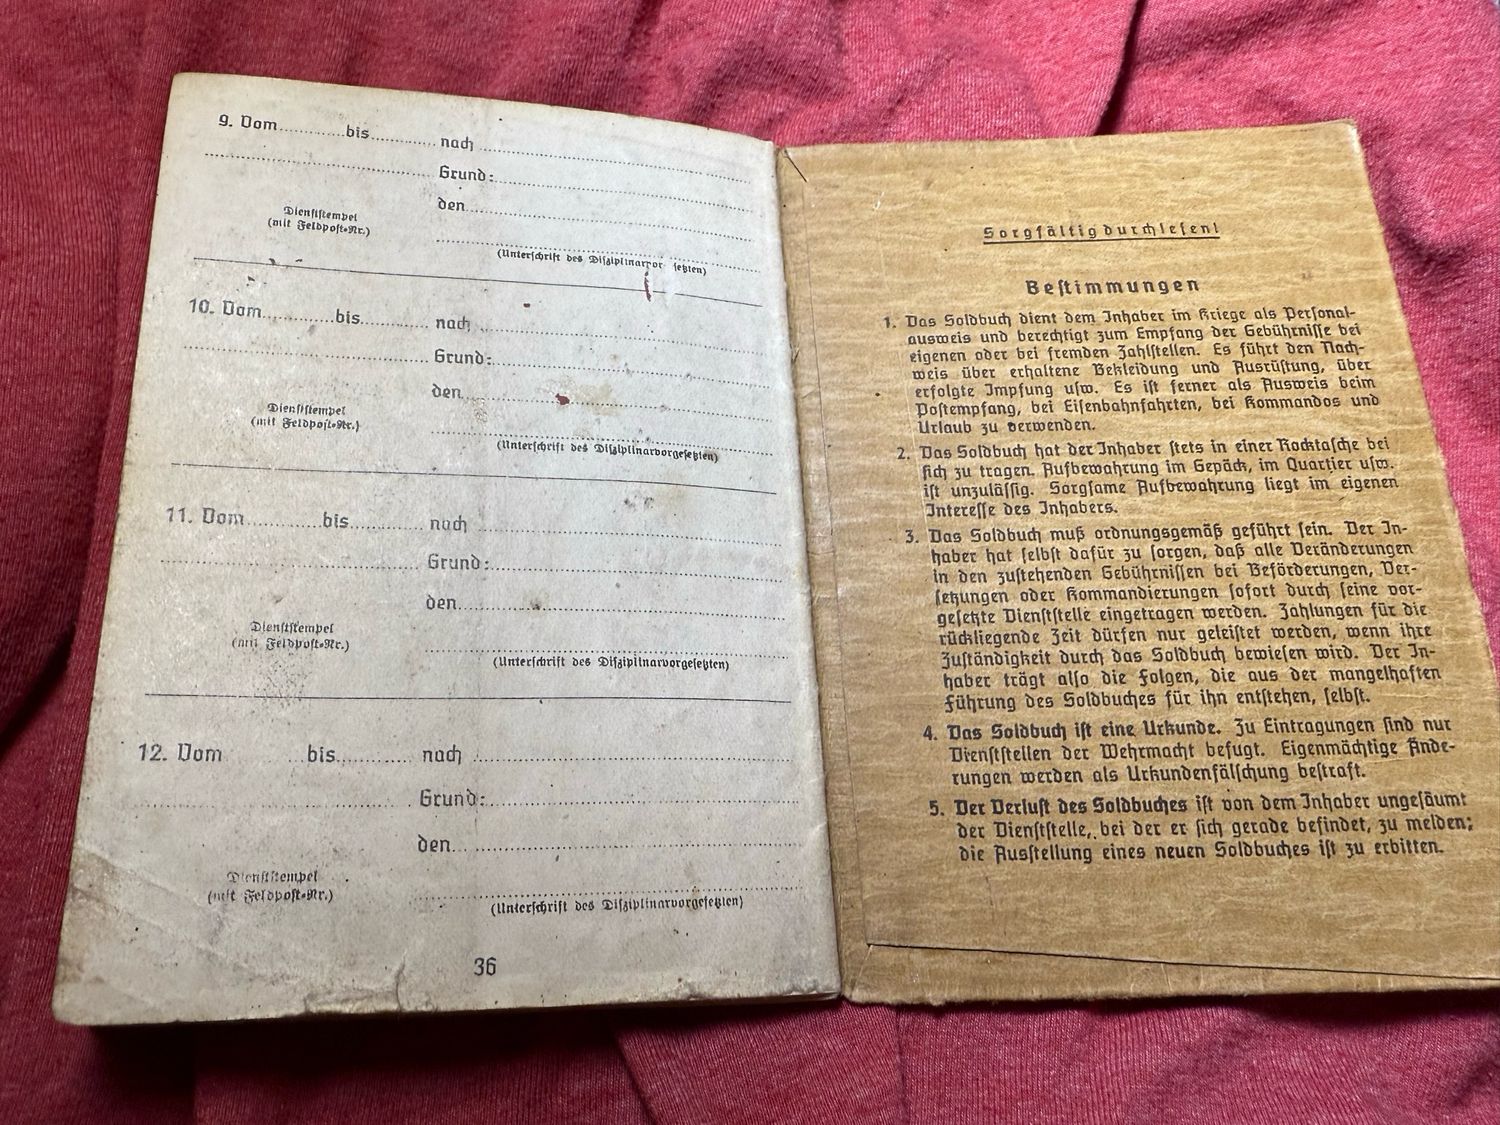 9. Vom............bis............ nach ............
............ Grund:............
den............
Dienststempel
(mit Feldpost-Nr.)
(Unterschrift des Disziplinarvorgesetzten)
10. Vom............bis............ nach ............
............ Grund:............
den............
Dienststempel
(mit Feldpost-Nr.)
(Unterschrift des Disziplinarvorgesetzten)
11. Vom............bis............ nach ............
............ Grund:............
den............
Dienststempel
(mit Feldpost-Nr.)
(Unterschrift des Disziplinarvorgesetzten)
12. Vom ............bis............ nach ............
............ Grund:............
den............
Dienststempel
(mit Feldpost-Nr.)
(Unterschrift des Disziplinarvorgesetzten)
36
Sorgfältig durchlesen!
Bestimmungen
1. Das Soldbuch dient dem Inhaber im Kriege als Personal-
ausweis und berechtigt zum Empfang der Gebührnisse bei
eigenen oder bei fremden Zahlstellen. Es führt den Nach-
weis über erhaltene Bekleidung und Ausrüstung, über
erfolgte Impfung usw. Es ist ferner als Ausweis beim
Postempfang, bei Eisenbahnfahrten, bei Kommandos und
Urlaub zu verwenden.
2. Das Soldbuch hat der Inhaber stets in einer Rocktasche bei
sich zu tragen. Aufbewahrung im Gepäck, im Quartier usw.
ist unzulässig. Sorgsame Aufbewahrung liegt im eigenen
Interesse des Inhabers.
3. Das Soldbuch muß ordnungsgemäß geführt sein. Der In-
haber hat selbst dafür zu sorgen, daß alle Veränderungen
in den zustehenden Gebührnissen bei Beförderungen, Ver-
setzungen oder Kommandierungen sofort durch seine vor-
gesetzte Dienststelle eingetragen werden. Zahlungen für die
rückliegende Zeit dürfen nur geleistet werden, wenn ihre
Zuständigkeit durch das Soldbuch bewiesen wird. Der In-
haber trägt also die Folgen, die aus der mangelhaften
Führung des Soldbuches für ihn entstehen, selbst.
4. Das Soldbuch ist eine Urkunde. Zu Eintragungen sind nur
Dienststellen der Wehrmacht befugt. Eigenmächtige Ände-
rungen werden als Urkundenfälschung bestraft.
5. Der Verlust des Soldbuches ist von dem Inhaber ungesäumt
der Dienststelle, bei der er sich gerade befindet, zu melden;
die Ausstellung eines neuen Soldbuches ist zu erbitten.